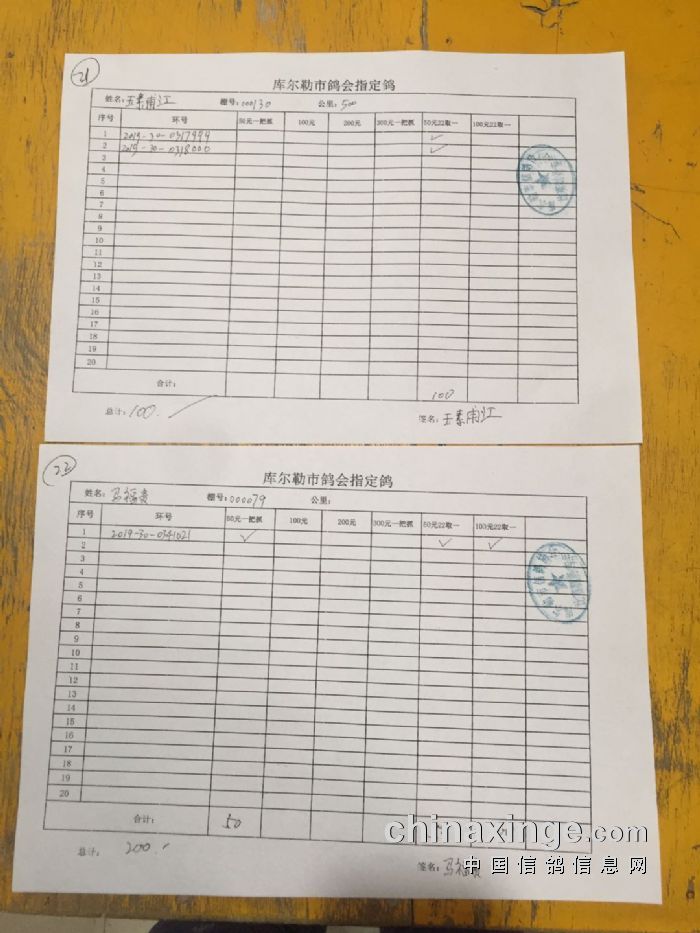 21
库尔勒市鸽会指定鸽
姓名: 玉素甫江 棚号: 000130 公里: 500
序号 环号 50元一把抓 100元 200元 300元一把抓 50元22取一 100元22取一
1 2019-30-0317999 ✓
2 2019-30-0318000 ✓
3
4
5
6
7
8
9
10
11
12
13
14
15
16
17
18
19
20
合计: 100
总计: 100.
签名: 玉素甫江
23
库尔勒市鸽会指定鸽
姓名: 马福贵 棚号: 000079 公里:
序号 环号 50元一把抓 100元 200元 300元一把抓 50元22取一 100元22取一
1 2019-30-0341021 ✓ ✓ ✓
2
3
4
5
6
7
8
9
10
11
12
13
14
15
16
17
18
19
20
合计: 50
总计: 200.
签名: 马福贵
chinaxinge.com
中国信鸽信息网